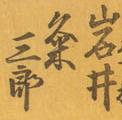 岩井
粂
三郎